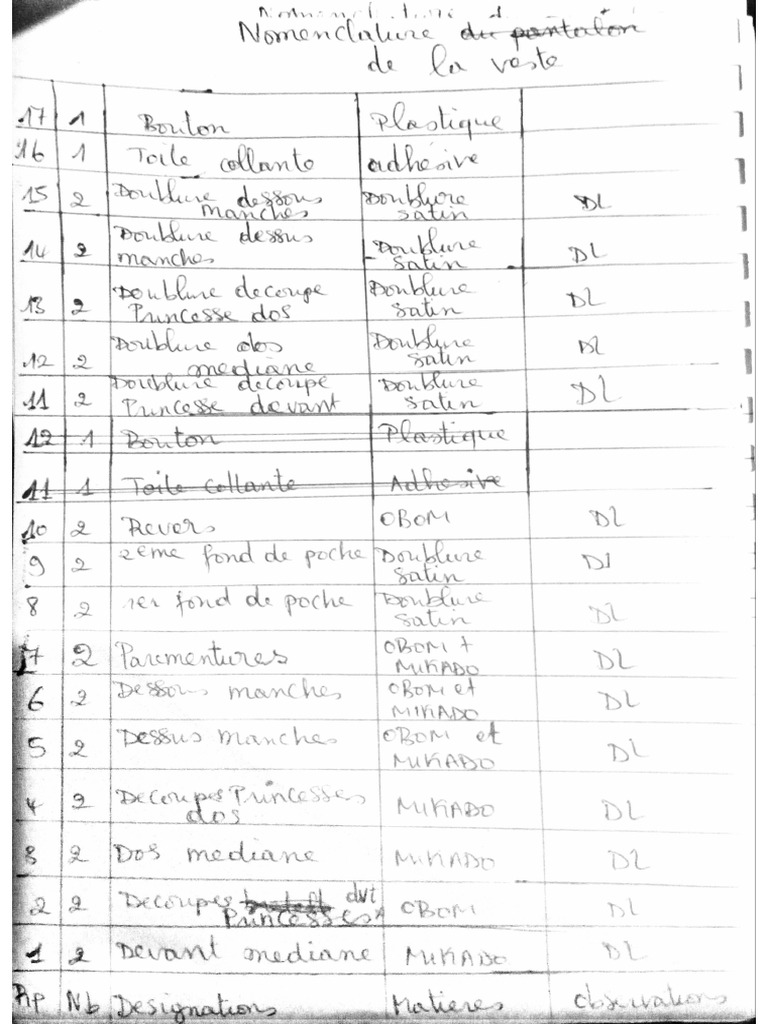 Nomenclature du pantalon
de la veste
17 1 Bouton Plastique
16 1 Toile collante adhésive
15 2 Doublure dessous manches Doublure satin DL
14 2 Doublure dessus manches Doublure satin DL
13 2 Doublure decoupe Princesse dos Doublure satin DL
12 2 Doublure dos mediane Doublure satin DL
11 2 Doublure decoupe Princesse devant Doublure satin DL
12 1 Bouton Plastique
11 1 Toile collante Adhesive
10 2 Revers OBOM DL
9 2 2eme fond de poche Doublure satin DL
8 2 1er fond de poche Doublure satin DL
7 2 Parementures OBOM + MIKADO DL
6 2 Dessous manches OBOM et MIKADO DL
5 2 Dessus manches OBOM et MIKADO DL
4 2 Decoupes Princesses dos MIKADO DL
3 2 Dos mediane MIKADO DL
2 2 Decoupes dvt Princesses OBOM DL
1 2 Devant mediane MIKADO DL
Rp Nb Designations Matieres Observations